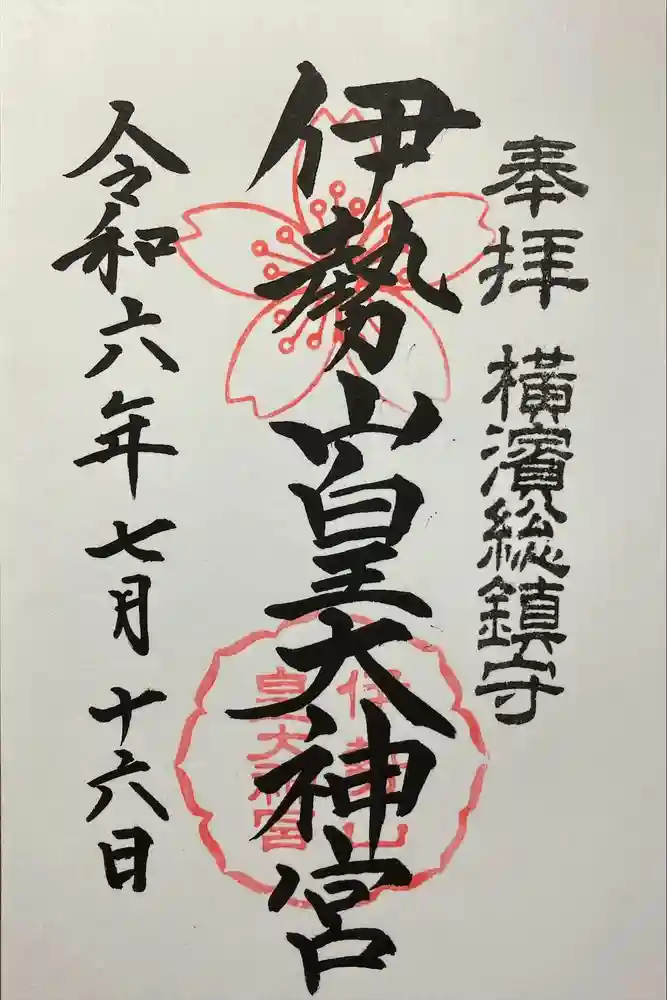 奉拝 横濱総鎮守
伊勢山皇大神宮
伊勢山
皇大神宮
令和六年七月十六日